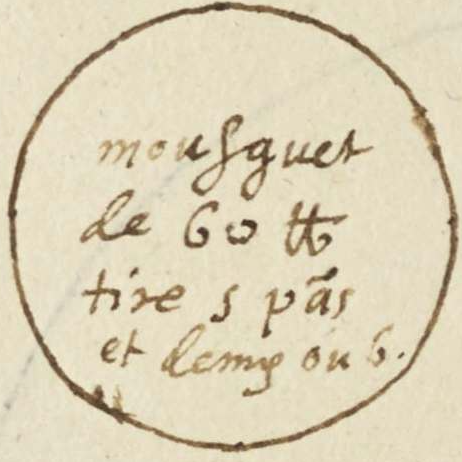 mousquet
de 60 ℔
tire 5 pãs
et demy ou 6.